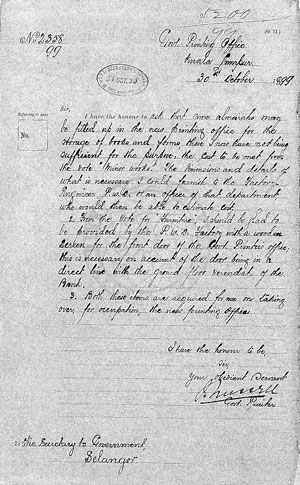 5200
99
No 2358
99
(G. 11.)
Govt Printing Office
Kuala Lumpur
30th October 1899
31 OCT. 99
Referring to your
No.
Sir,
I have the honour to ask that two almirahs may
be fitted up in the new Printing Office for the
storage of books and forms, those I now have not being
sufficient for the purpose, the cost to be met from the
vote "Minor works". The dimensions and details of
what is necessary I could furnish to the Factory
Engineer P.W.D. or an officer of that department
who would then be able to estimate cost.
2. From the Vote for "Furniture", I should be glad to
be provided by the P.W.D. Factory with a wooden
screen for the front door of the Govt Printers office,
this is necessary on account of the door being in a
direct line with the ground floor verandah of the
Bank.
3. Both these items are required for me on taking
over, for occupation, the new printing office
I have the honour to be,
Sir,
Your obedient Servant
Russell
Govt. Printer
The Secretary to Government,
Selangor